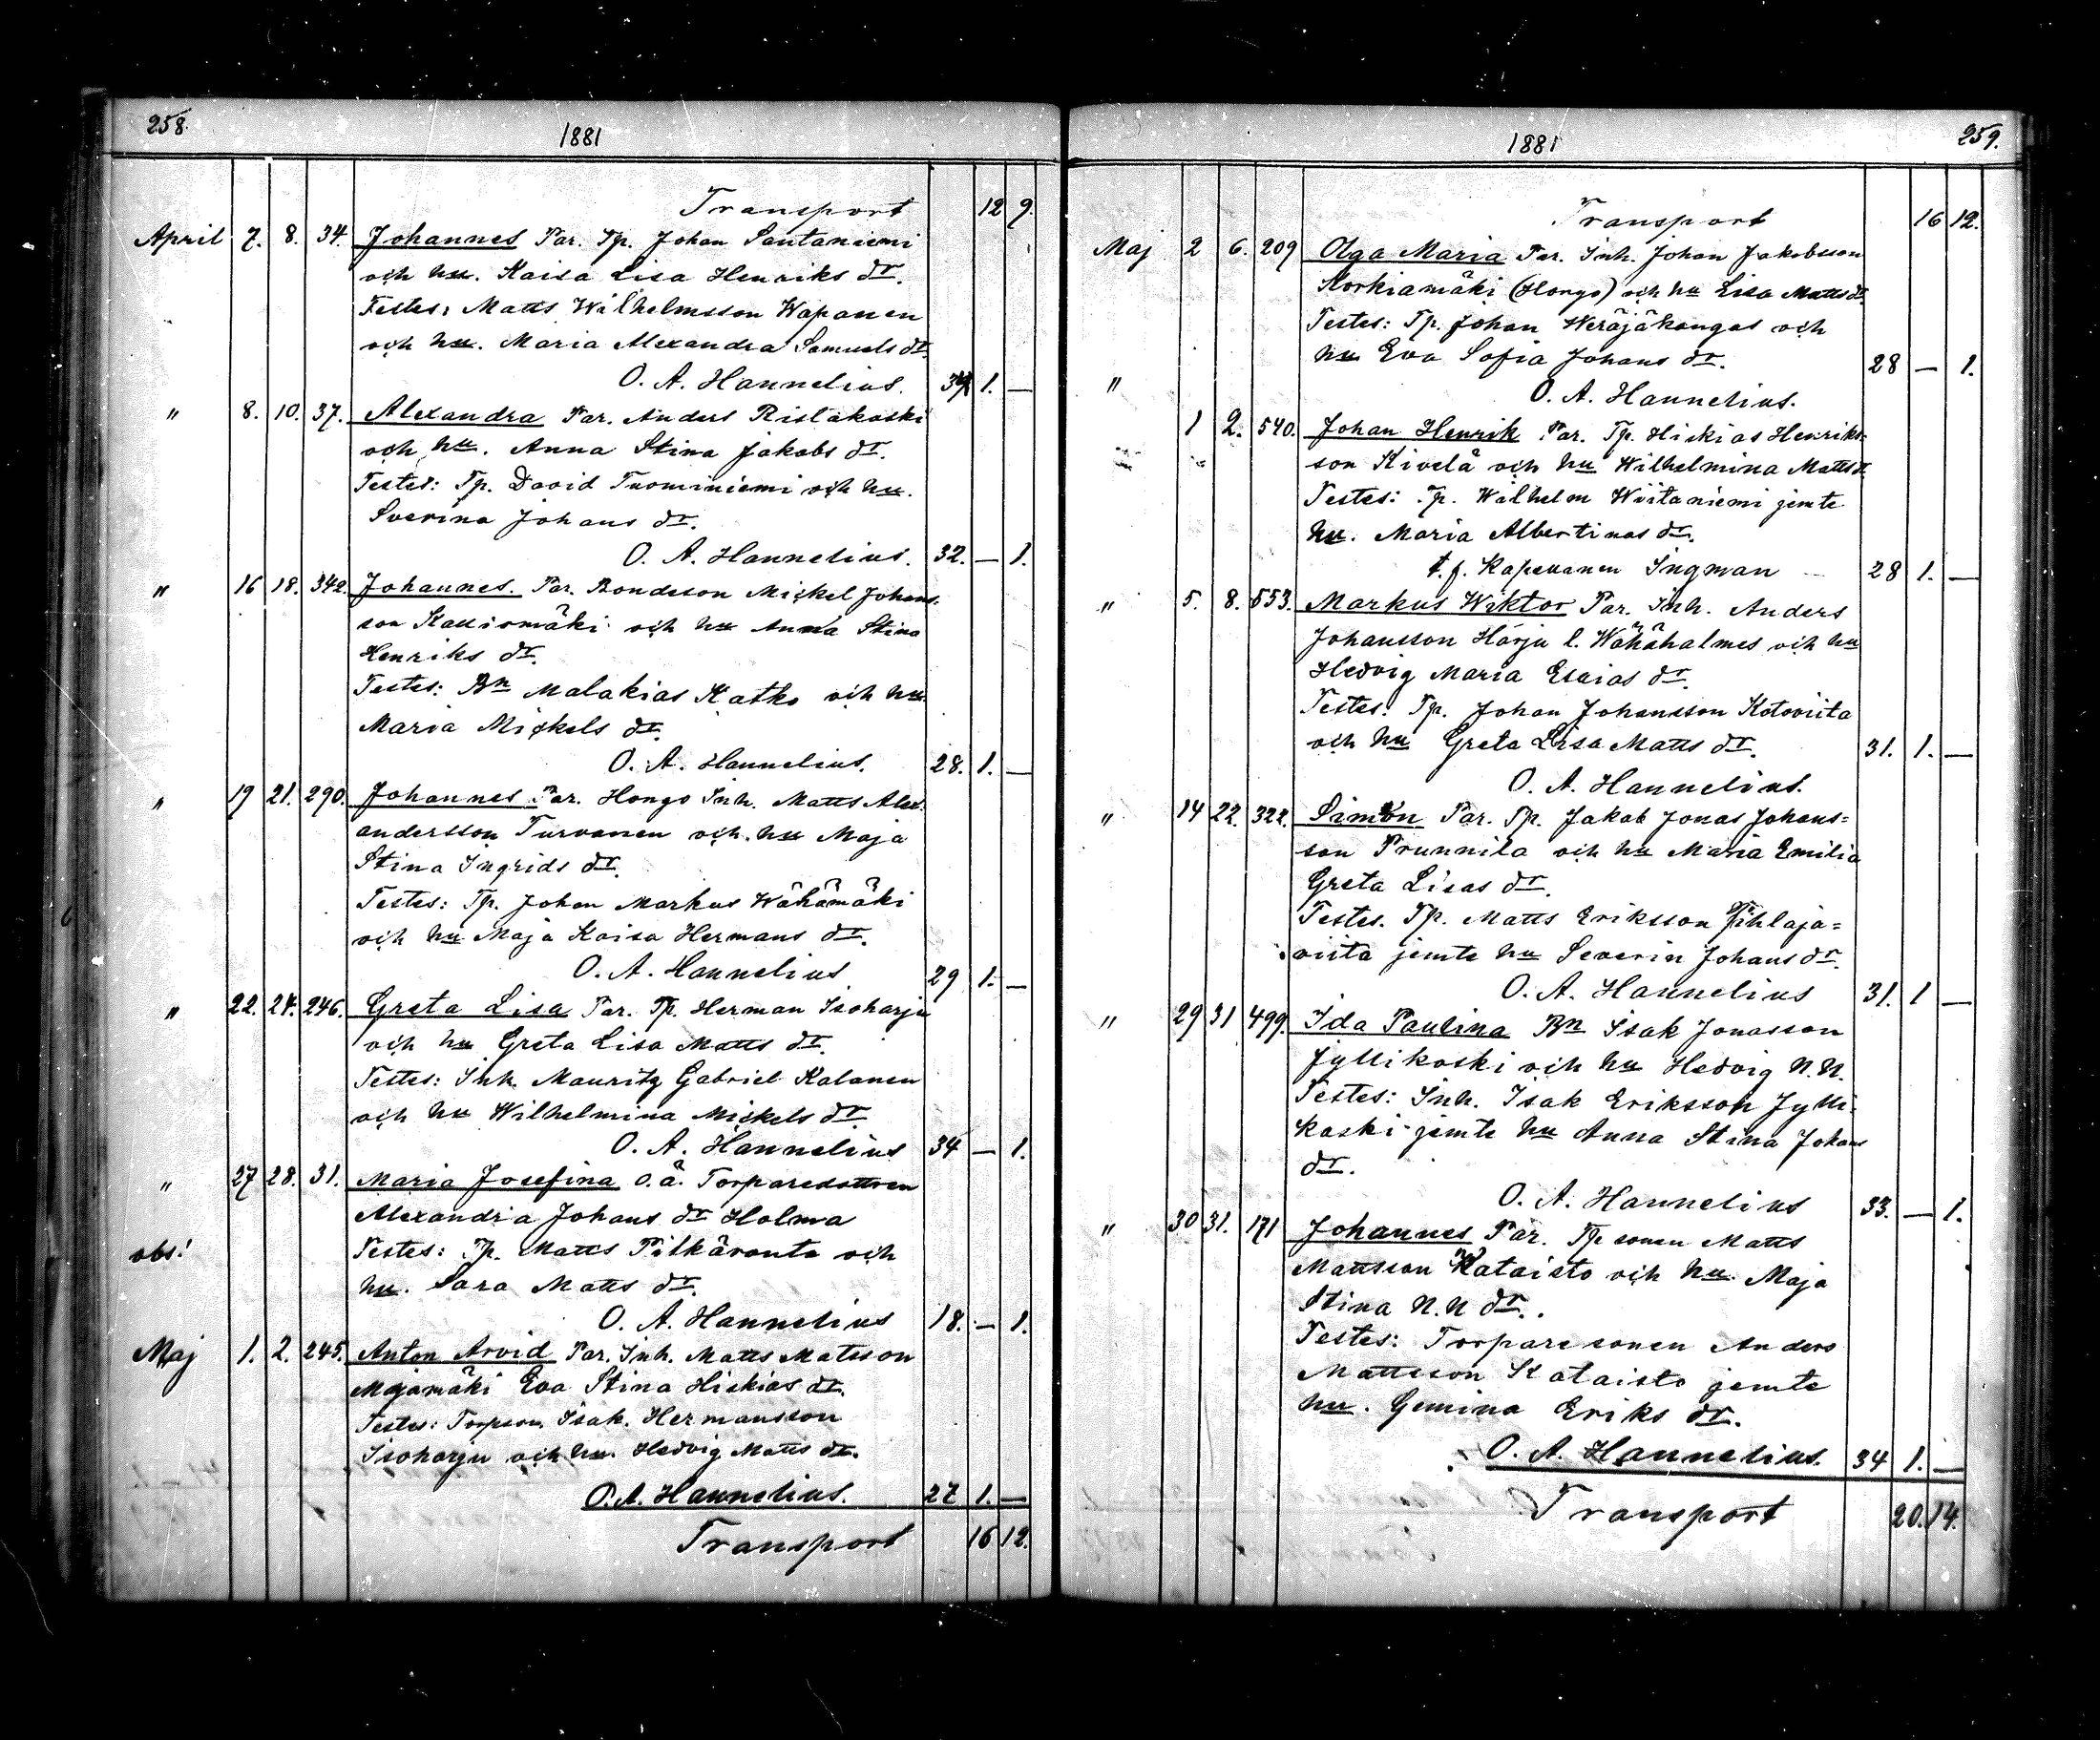 258.
1881
Transport 12 9.
April 7. 8. 34. Johannes Par. Tp. Johan Santaniemi
och hu. Kaisa Lisa Henriks dr.
Testes: Matts Wilhelmsson Wapanen
och hu. Maria Alexandra Samuels dr.
O. A. Hannelius. 34 1. —
" 8. 10. 37. Alexandra Par. Anders Ristakoski
och hu. Anna Stina Jakobs dr.
Testes: Tp. David Tuominiemi och hu.
Sverina Johans dr.
O. A. Hannelius. 32. — 1.
" 16 18. 342. Johannes. Par. Bondeson Mickel Johans-
son Kassiomäki och hu Anna Stina
Henriks dr.
Testes: Bn Malakias Katko och hu.
Maria Mickels dr.
O. A. Hannelius. 28. 1. —
" 19 21. 290. Johannes Par. Hongo Inh. Matts Alex-
andersson Turvanen och hu Maja
Stina Ingrids dr.
Testes: Tp. Johan Markus Wähämäki
och hu Maja Kaisa Hermans dr.
O. A. Hannelius 29 1. —
" 22. 24. 246. Greta Lisa Par. Tp. Herman Isoharju
och hu Greta Lisa Matts dr.
Testes: Inh. Mauritz Gabriel Kalanen
och hu Wilhelmina Mickels dr.
O. A. Hannelius 34 — 1.
" 27 28. 31. Maria Josefina o.ä. Torparedottren
Alexandra Johans dr Holma
obs! Testes: Tp. Matts Pitkäranta och
hu. Sara Matts dr.
O. A. Hannelius 18. — 1.
Maj 1. 2. 245. Anton Arvid Par. Inh. Matts Matsson
Majamäki Eva Stina Hiskias dr.
Testes: Torpson Isak Hermansson
Isoharju och hu. Hedvig Matts dr.
O. A. Hannelius. 27 1. —
Transport 16 12.
259.
1881
Transport 16 12.
Maj 2 6. 209 Olga Maria Par. Inh. Johan Jakobsson
Korkiamäki (Hongo) och hu Lisa Matts dr.
Testes: Tp. Johan Weräjäkangas och
hu Eva Sofia Johans dr. 28 — 1.
" O. A. Hannelius.
1 2. 540. Johan Henrik Par. Tp. Hiskias Henriks=
son Kivelä och hu Wilhelmina Matts dr
Testes: Tp. Wilhelm Wiitaniemi jemte
hu. Maria Albertinas dr.
t. f. Kapellanen Ingman 28 1. —
" 5. 8. 553. Markus Wiktor Par. Inh. Anders
Johansson Harju l. Wähähalmes och hu
Hedvig Maria Esaias dr.
Testes. Tp. Johan Johansson Kotoviita
och hu Greta Lisa Matts dr. 31. 1. —
O. A. Hannelius.
" 14 22. 322. Simon Par. Tp. Jakob Jonas Johans=
son Prunnila och hu Maria Emilia
Greta Lisas dr.
Testes. Tp. Matts Eriksson Pihlaja=
viita jemte hu Severin Johans dr.
O. A. Hannelius 31. 1 —
" 29 31 499. Ida Paulina Bn Isak Jonasson
Jyllikoski och hu Hedvig N.N.
Testes: Inh. Isak Eriksson Jylli-
koski jemte hu Anna Stina Johans
dr.
O. A. Hannelius 33. — 1.
" 30 31. 171 Johannes Par. Tp sonen Matts
Mattsson Kataisto och hu. Maja
Stina N.N dr.
Testes: Torparesonen Anders
Mattsson Kataisto jemte
hu. Gemina Eriks dr.
O. A. Hannelius. 34 1. —
Transport 20. 14.